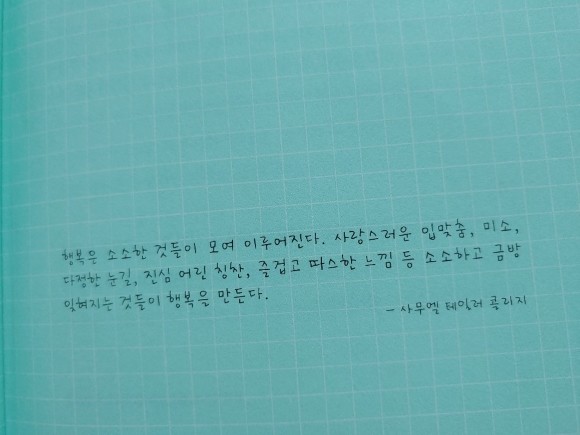 행복은 소소한 것들이 모여 이루어진다. 사랑스러운 입맞춤, 미소,
다정한 눈길, 진심 어린 칭찬, 즐겁고 따스한 느낌 등 소소하고 금방
잊혀지는 것들이 행복을 만든다.
- 사무엘 테일러 콜리지